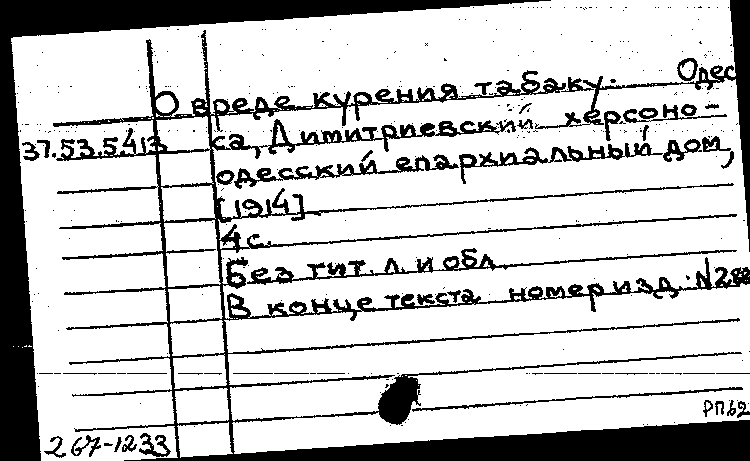 О вреде курения табаку. Одес
37.53.5.413 са, Димитриевский херсоно-
одесский епархиальный дом,
[1914]
4 с.
Без тит. л. и обл.
В конце текста номер изд.:
267-1233